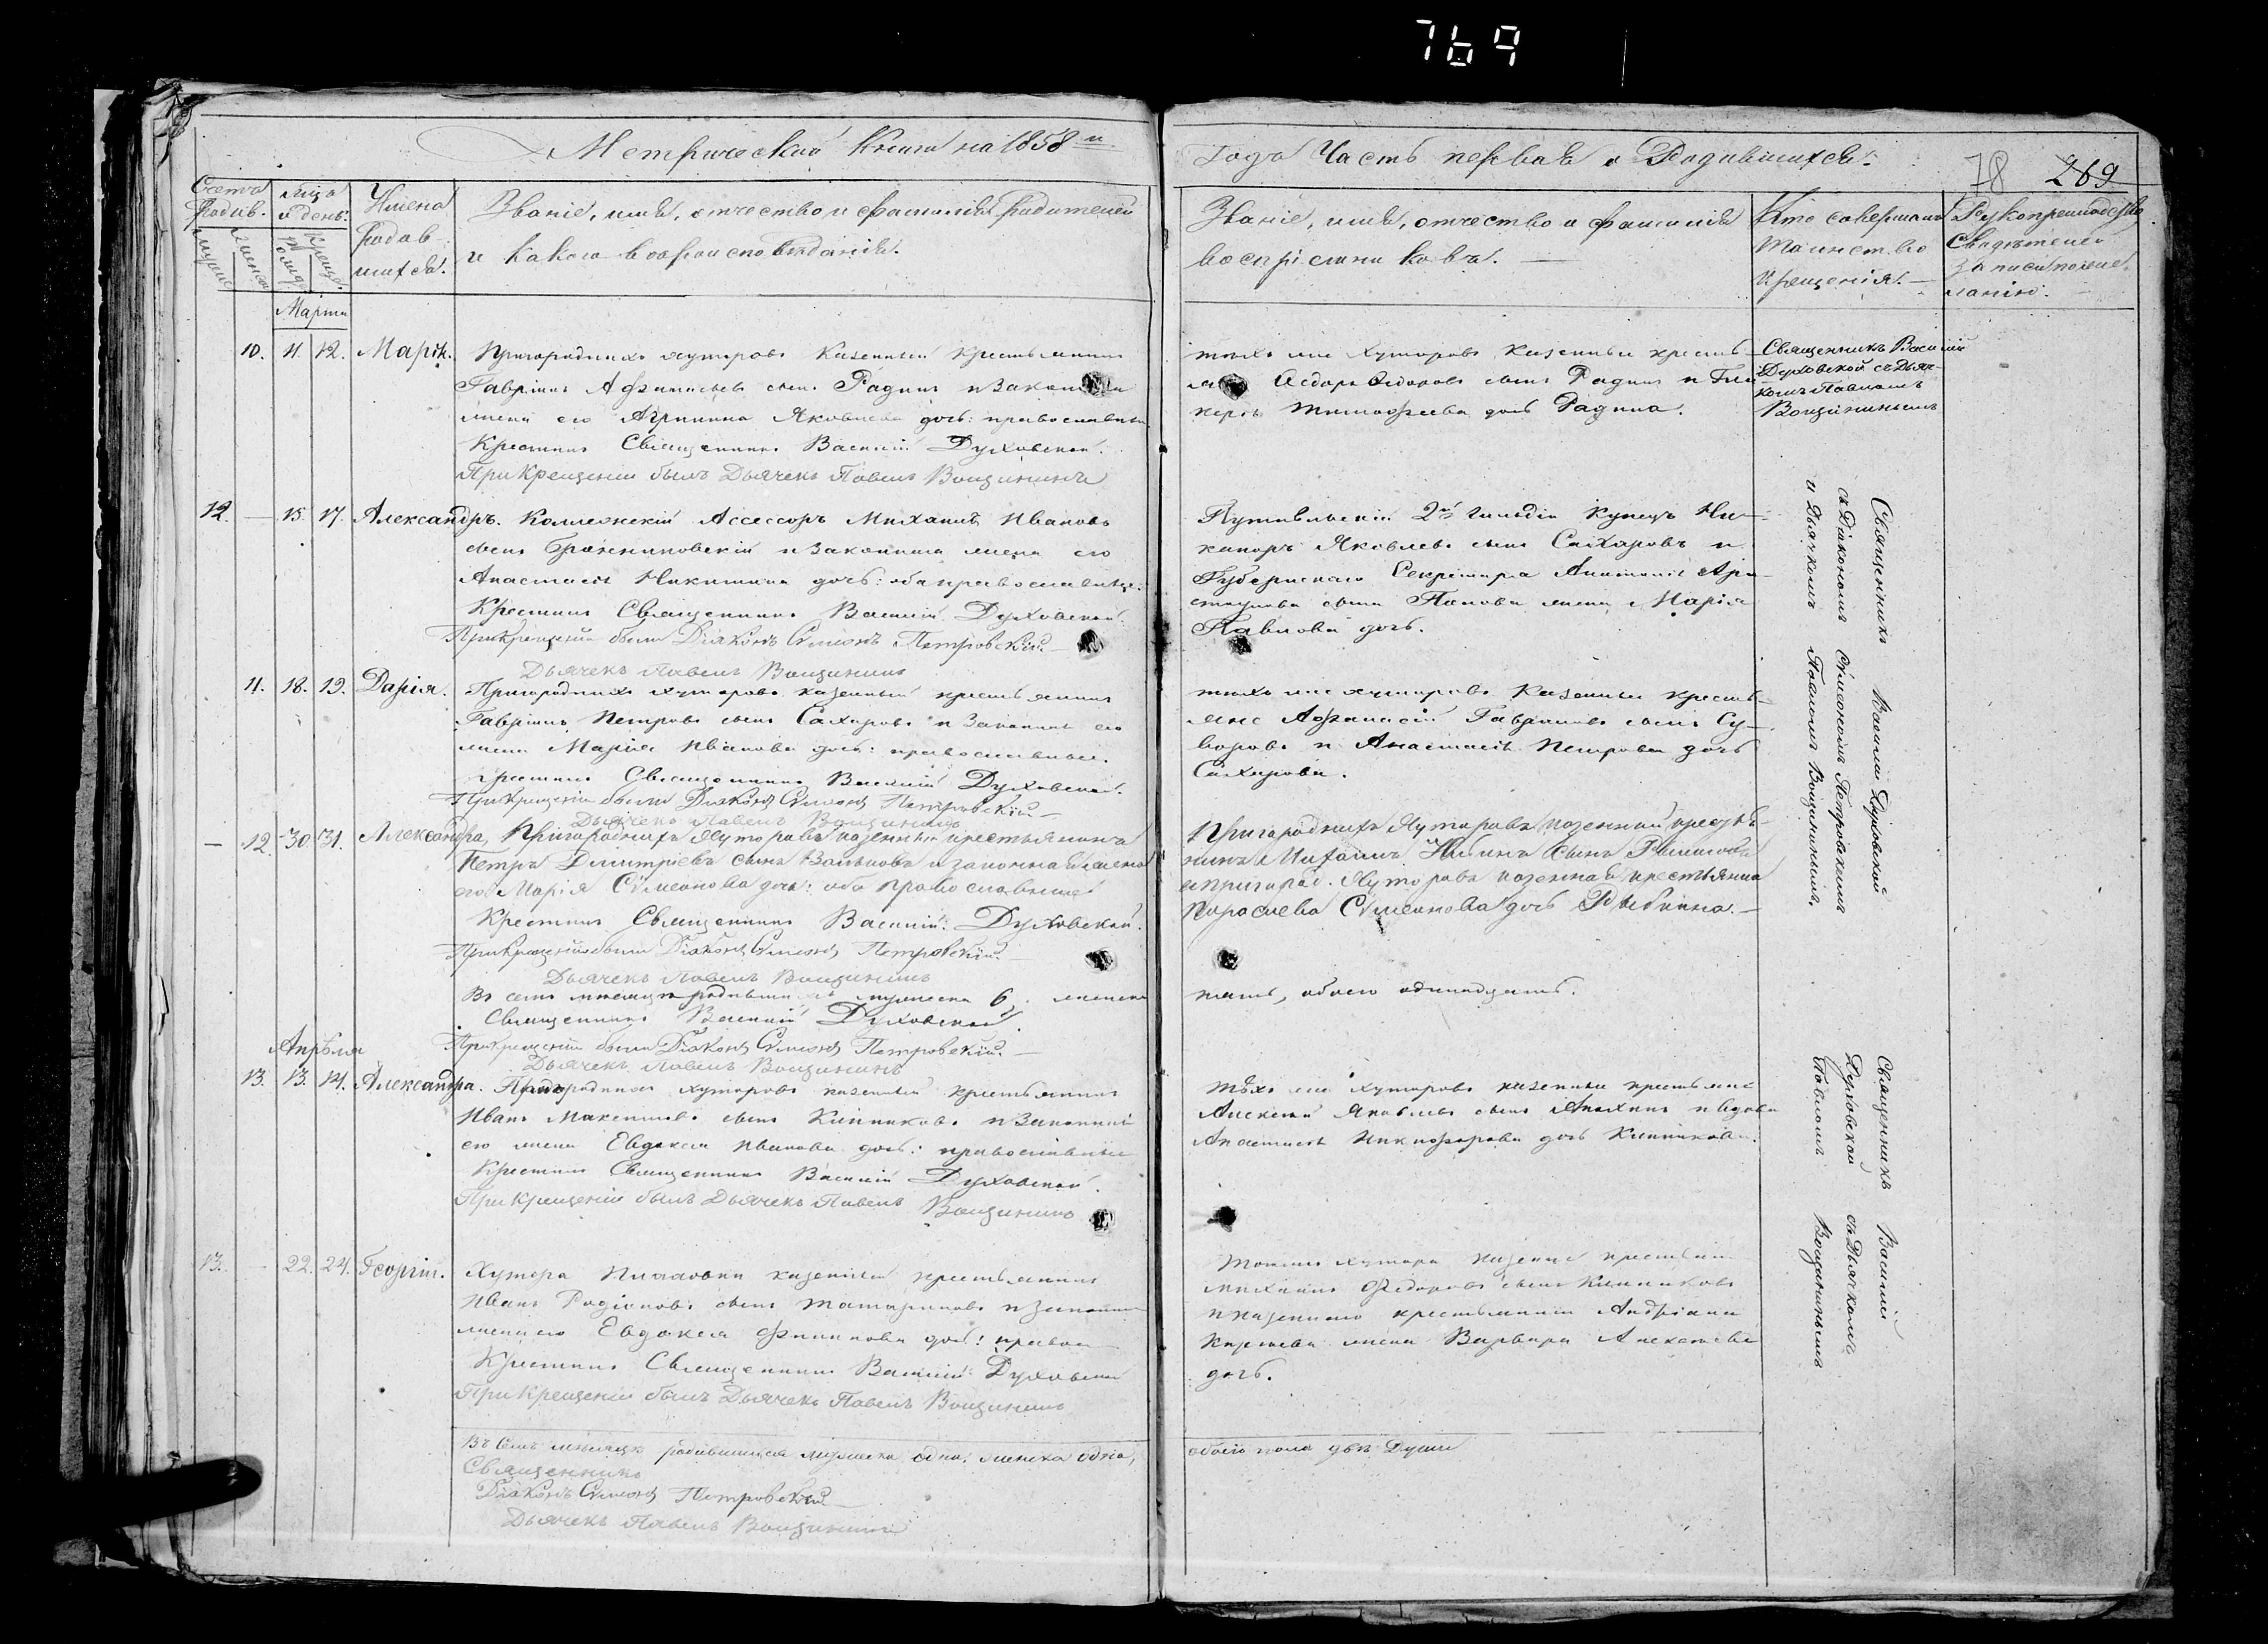 769
Метрической Книги на 1858 й
Года Часть первая о Родившихся.
78 269
Счетъ родив.
мужес. женск.
Мѣся. и день.
рожд. креще.
Имена родившихся.
Званіе, имя, отчество и фамилія родителей
и какого вѣроисповѣданія.
Званіе, имя, отчество и фамилія
воспріемниковъ.
Кто совершалъ
таинство
крещенія.
Рукоприкладство
свидѣтелей
записи по жела-
нію.
Марта
10. 11. 12. Марія.
Пригородныхъ хуторовъ казенный крестьянинъ
Гавріилъ Афанасьевъ сынъ Радинъ и законная
жена его Агрипина Яковлева дочь: православные
Крестилъ Священникъ Василій Духовской.
При крещеніи былъ Дьячекъ Павелъ Вощининъ
тѣхъ же хуторовъ казенные кресть-
яне Ѳедоръ Ѳедоровъ сынъ Радинъ и Гли-
керія Тимофеева дочь Радина.
Священникъ Василій
Духовской съ Дьяч-
комъ Павломъ
Вощининымъ
12. — 15. 17. Александръ.
Коллежскій Ассессоръ Михаилъ Ивановъ
сынъ и законная жена его
Анастасія Никитина дочь: оба православные:
Крестилъ Священникъ Василій Духовской.
При крещеніи были Діаконъ Сѵмеонъ Петровскій
Дьячекъ Павелъ Вощининъ
Путивльскій 2й гильдіи купецъ Ни-
каноръ Яковлевъ сынъ Сахаровъ и
Губернскаго Секретаря Анатолія Ари-
сынъ Попова жена Марія
Павлова дочь.
Священникъ Василій Духовской
съ Діакономъ Сѵмеономъ Петровскимъ
и Дьячкомъ Павломъ Вощининымъ.
11. 18. 19. Дарія.
Пригородныхъ хуторовъ казенный крестьянинъ
Гавріилъ Петровъ сынъ Сахаровъ и законная его
жена Марія Иванова дочь: православные.
Крестилъ Священникъ Василій Духовской.
При крещеніи были Діаконъ Сѵмеонъ Петровскій
Дьячекъ Павелъ Вощининъ
тѣхъ же хуторовъ казенные кресть-
яне Афанасій Гавриловъ сынъ Су-
воровъ и Анастасія Петрова дочь
Сахарова.
— 12. 30. 31. Александра,
Пригородныхъ хуторовъ казенный крестьянинъ
Петръ Димитріевъ сынъ и законная жена
его Марія Сѵмеонова дочь: оба православные
Крестилъ Священникъ Василій Духовской.
При крещеніи были Діаконъ Сѵмеонъ Петровскій.
Дьячекъ Павелъ Вощининъ
Пригородныхъ хуторовъ казенный кресть-
нинъ Михаилъ сынъ
и пригород. хуторовъ казенная крестьянка
Сѵмеонова дочь Рыбкина.
Въ семъ мѣсяцѣ родившихся мужеска 6, женска
пять, обоего одинадцать.
Священникъ Василій Духовской.
При крещеніи были Діаконъ Сѵмеонъ Петровскій.
Дьячекъ Павелъ Вощининъ
Апрѣля
13. 13. 14. Александра.
Пригородныхъ хуторовъ казенный крестьянинъ
Иванъ Максимовъ сынъ Кипниковъ и законная
его жена Евдокія Иванова дочь: православные
Крестилъ Священникъ Василій Духовской.
При крещеніи былъ Дьячекъ Павелъ Вощининъ
тѣхъ же хуторовъ казенные крестьяне
Алексѣй Яковлевъ сынъ Анохинъ и вдова
Анастасія Никифорова дочь Кипникова.
Священникъ Василій
Духовской съ Дьячкомъ
Павломъ Вощининымъ
13. — 22. 24. Георгій.
Хутора казенный крестьянинъ
Иванъ Родіоновъ сынъ Татариновъ и законная
жена его Евдокія Филипова дочь: правос
Крестилъ Священникъ Василій Духовской
При крещеніи былъ Дьячекъ Павелъ Вощининъ
Тогоже хутора казенный крестьянин
Михаилъ Ѳедоровъ сынъ Кипниковъ
и казеннаго крестьянина Андріана
жена Варвара Алексѣева
дочь.
Въ семъ мѣсяцѣ родившихся мужеска одна, женска одна,
обоего пола двѣ души
Священникъ
Діаконъ Сѵмеонъ Петровскій
Дьячекъ Павелъ Вощининъ